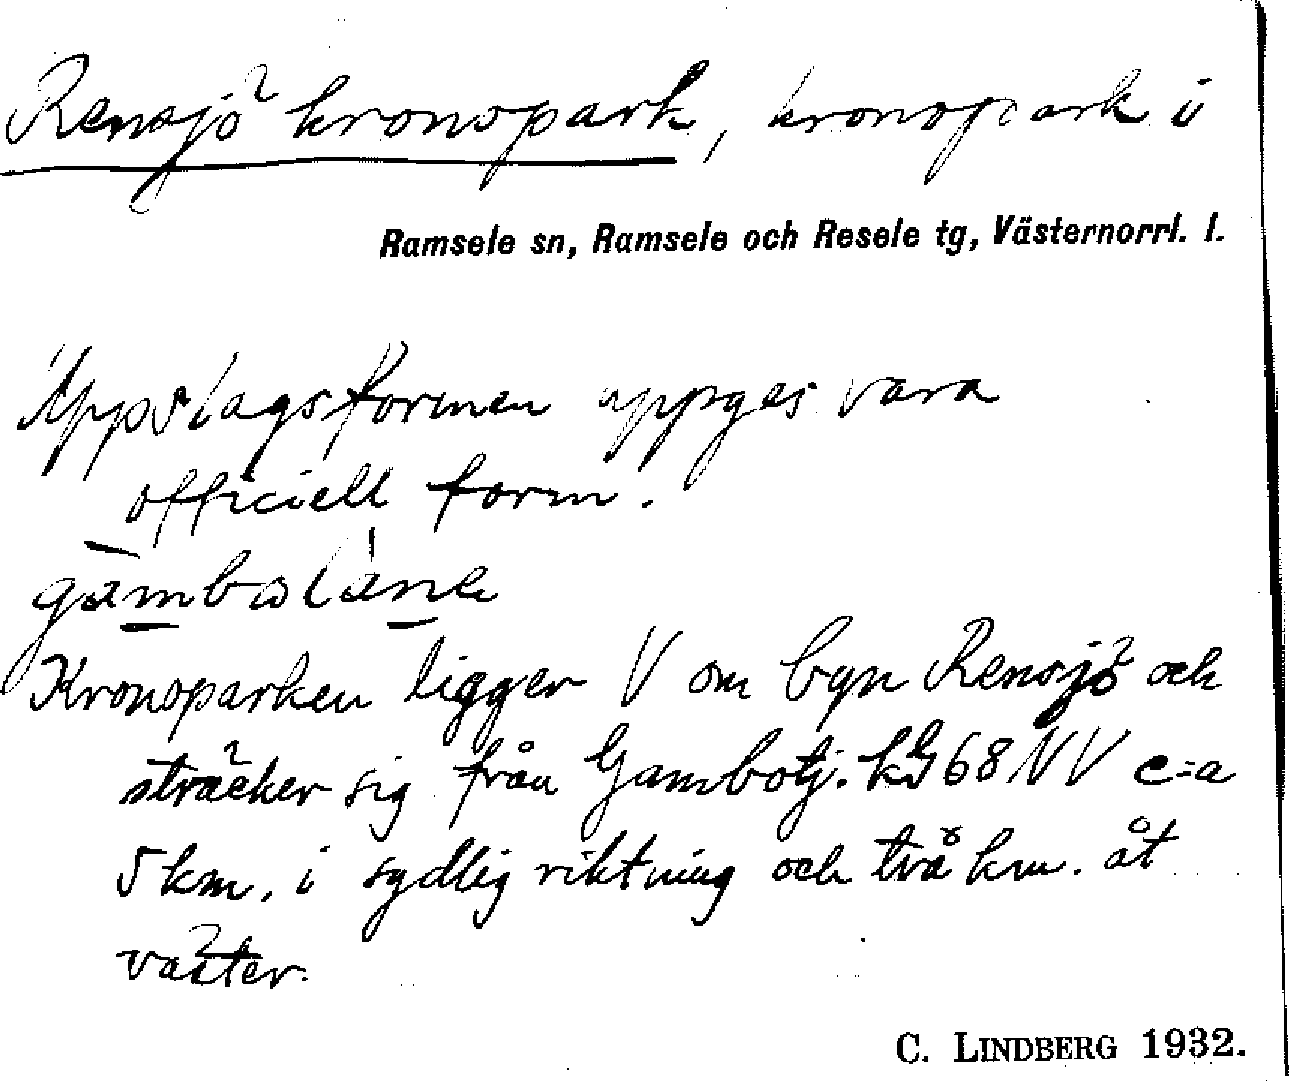 Rensjö kronopark, kronopark i
Ramsele sn, Ramsele och Resele tg, Västernorrl. l.
Uppslagsformen uppges vara
officiell form.
Kronoparken ligger V om byn Rensjö och
sträcker sig från Gambotj. kG68NV c:a
5 km. i sydlig riktning och två km. åt
väster.
C. LINDBERG 1932.